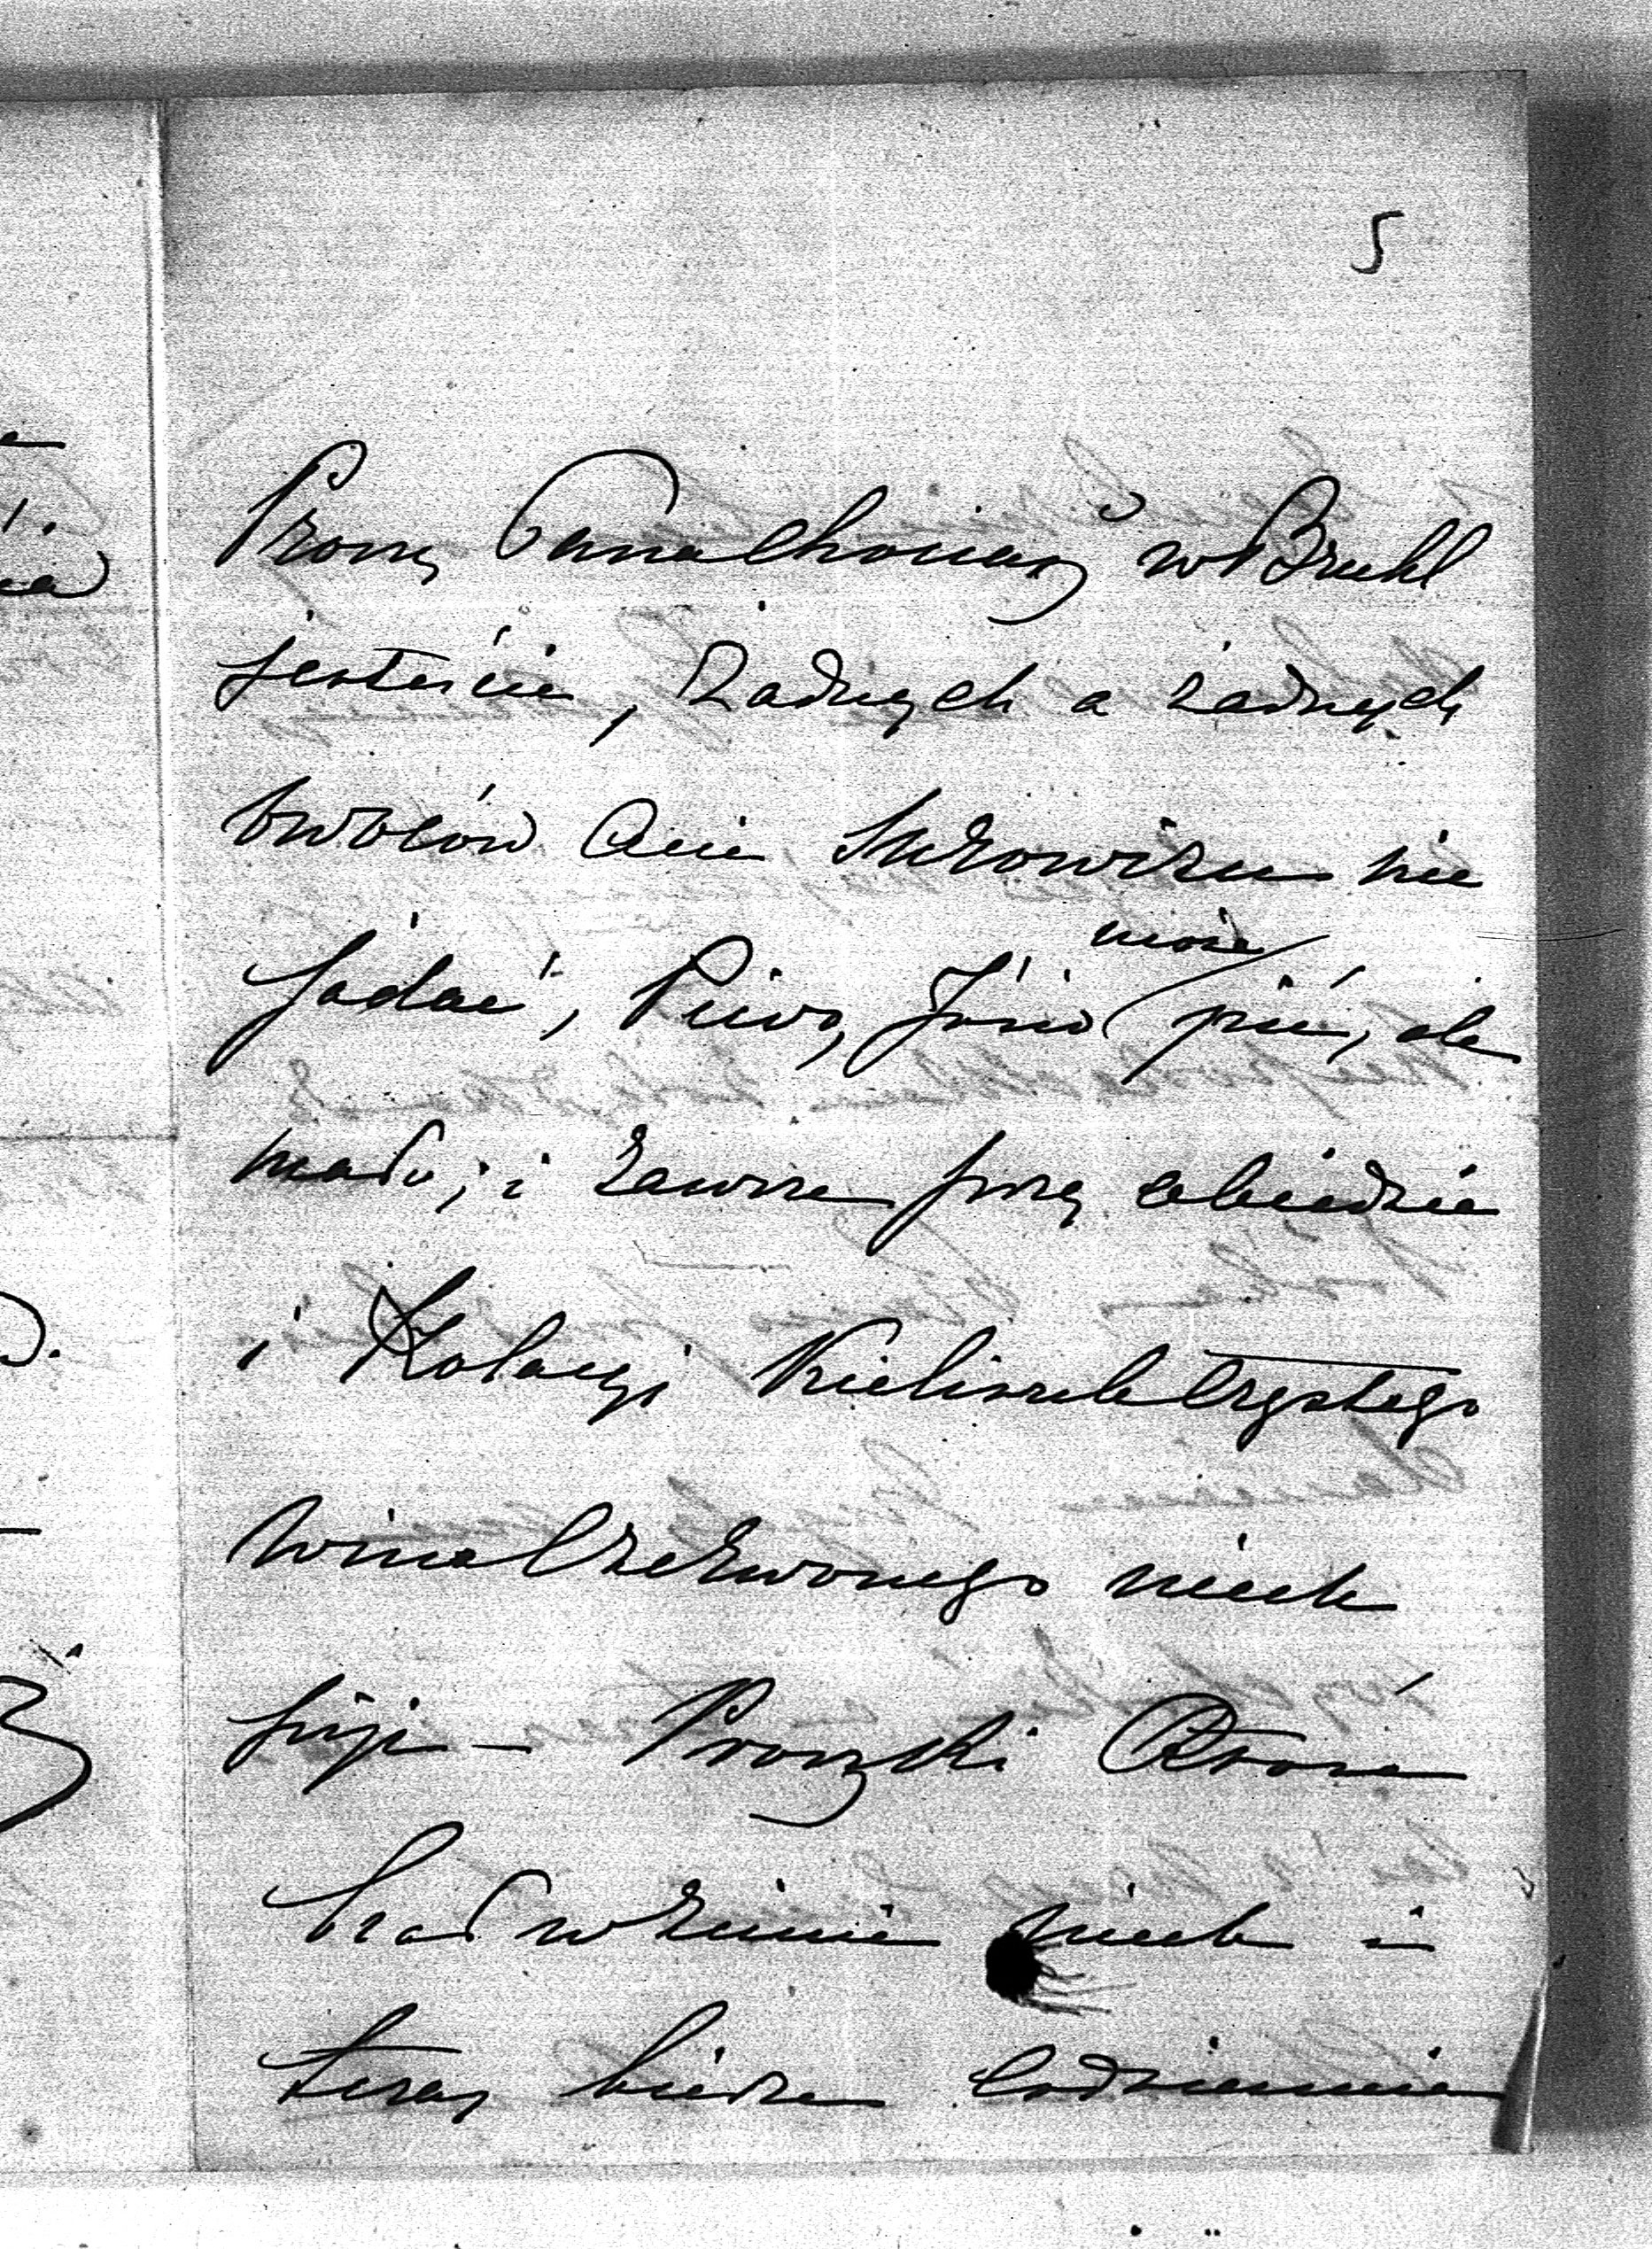 5
Proszę Pana
w Bruhl
jesteście, Żadnych a żadnych
owoców Ani Surowizn nie
jadać, Piwo, Józio może pić, ale
mało; i zawsze przy obiedzie
i Kolacyi Kieliszek Czystego
wina Czerwonego niech
pije — Proszki Które
brał w zimie niech i
teraz bierze Codziennie